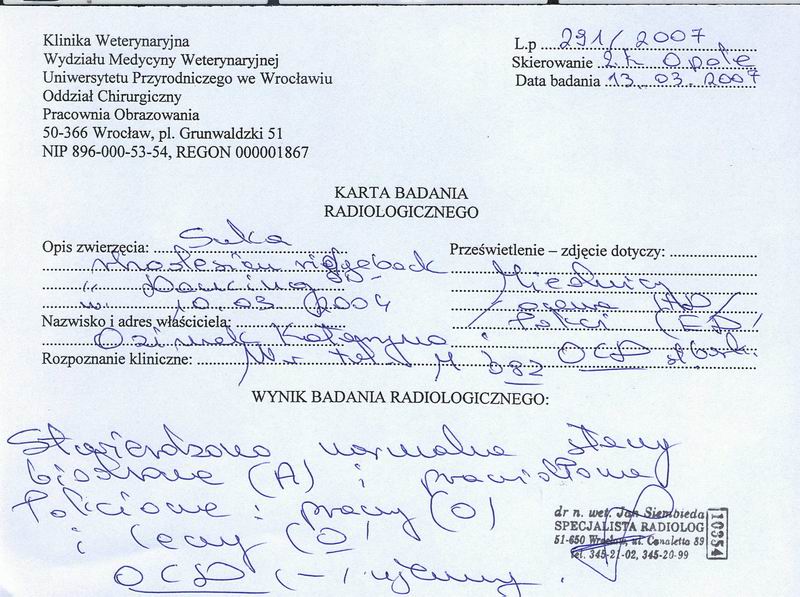 Klinika Weterynaryjna
Wydziału Medycyny Weterynaryjnej
Uniwersytetu Przyrodniczego we Wrocławiu
Oddział Chirurgiczny
Pracownia Obrazowania
50-366 Wrocław, pl. Grunwaldzki 51
NIP 896-000-53-54, REGON 000001867
L.p 291/2007
Skierowanie z.k Opole
Data badania 13.03.2007
KARTA BADANIA
RADIOLOGICZNEGO
Opis zwierzęcia: Suka
rhodesian ridgeback
ur. 10.03 2004
Prześwietlenie – zdjęcie dotyczy:
Miednicy
ocena (HD)
łokci (ED)
i OCD
Nazwisko i adres właściciela:
Ozimek Katarzyna
Rozpoznanie kliniczne: Nr 082
WYNIK BADANIA RADIOLOGICZNEGO:
Stwierdzono normalne stawy
biodrowe (A) i prawidłowe
łokciowe: prawy (0)
i lewy (0)
OCD (-) ujemny.
dr n. wet. Jan Siembieda
SPECJALISTA RADIOLOG
51-650 Wrocław, ul. Canaletta 89
tel. 345-21-02, 345-20-99
10354